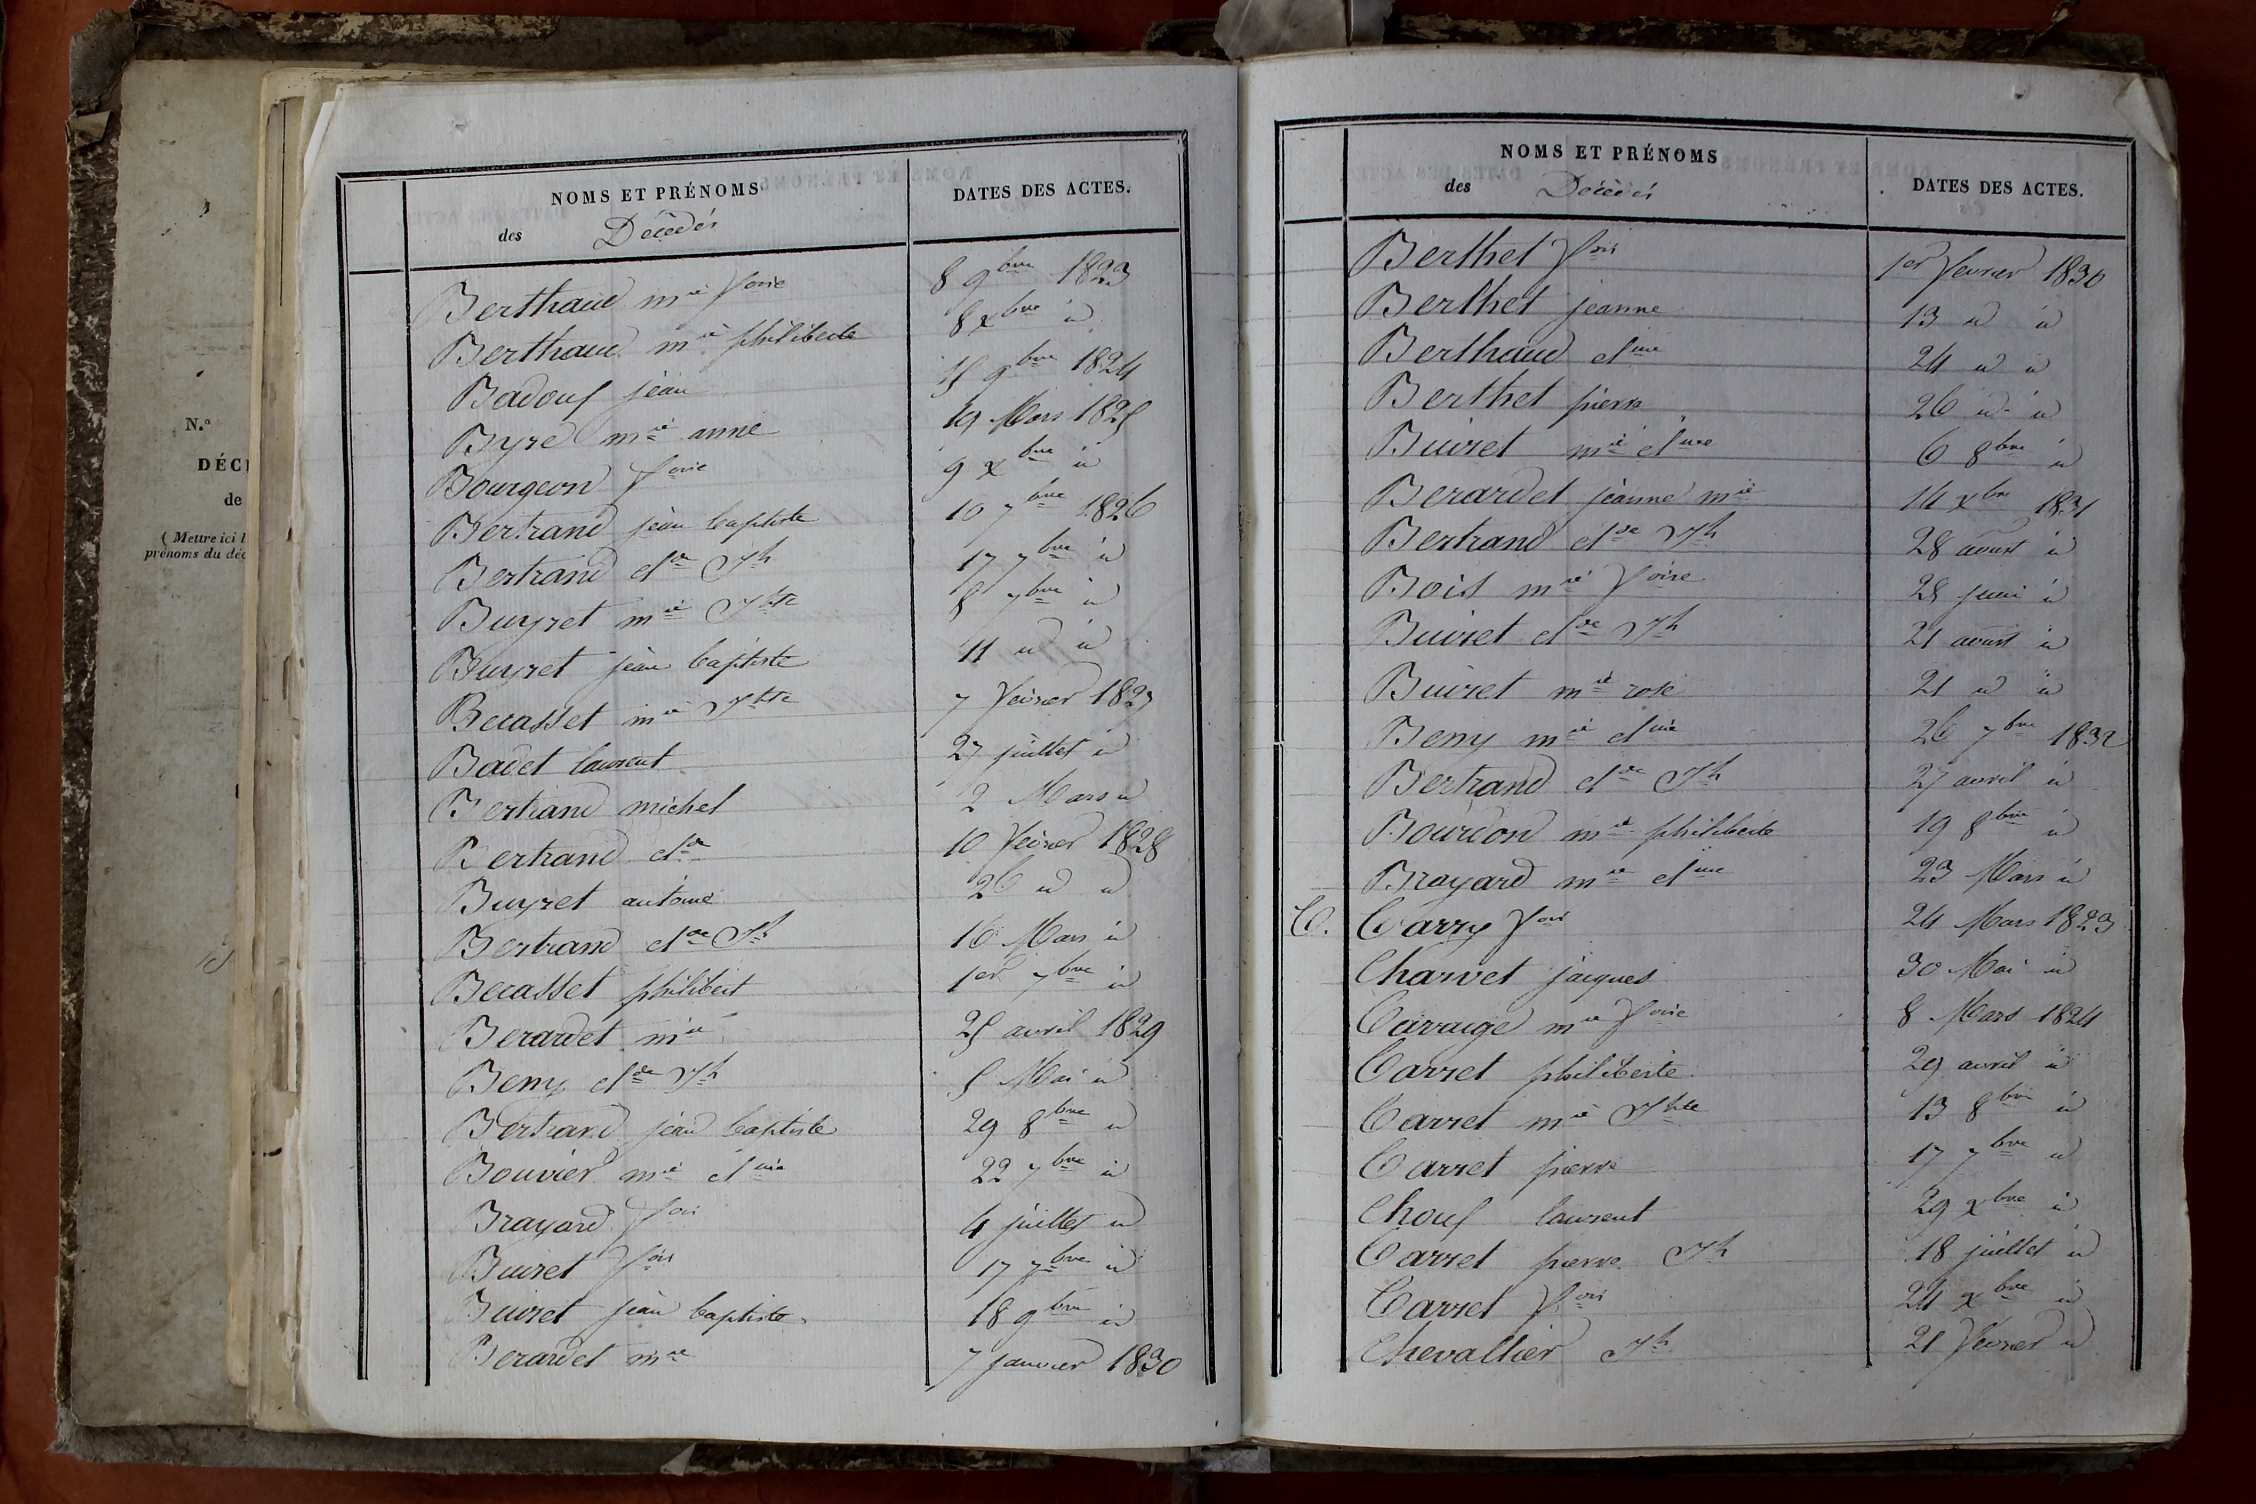 N.º
DÉC
de
(Mettre ici l
prénoms du déc
NOMS ET PRÉNOMS
des Décédés
DATES DES ACTES.
Berthaud mie foise 8 9bre 1823
Berthaud mie philiberte 8 xbre id
Badouf jean 15 9bre 1824
Byre mie anne 19 Mars 1825
Bourgeon foise 9 xbre id
Bertrand jean baptiste 10 7bre 1826
Bertrand clde Jh 17 7bre id
Buyret mie Jhte 8 7bre id
Buyret jean baptiste 11 id id
Becasset mie Jhte 7 fevrier 1827
Badet laurent 27 juillet id
Bertrand michel 2 Mars id
Bertrand clde 10 fevrier 1828
Buyret antoine 26 id id
Bertrand clde Jh 16 Mars id
Becasset philibert 1er 7bre id
Berardet mie 25 avril 1829
Beny clde Jh 5 Mai id
Bertrand jean baptiste 29 8bre id
Bouvier mie cl.ine 22 7bre id
Brayard fois 4 juillet id
Buiret fois 17 7bre id
Buiret jean baptiste 18 9bre id
Berardet mie 7 janvier 1830
NOMS ET PRÉNOMS
des Décédés
DATES DES ACTES.
Berthet fois 1er fevrier 1830
Berthet jeanne 13 id id
Berthaud cl.ine 24 id id
Berthet pierre 26 id id
Buiret mie cl.ine 6 8bre id
Berardet jeanne mie 14 xbre 1831
Bertrand clde Jh 28 aoust id
Bois mie foise 25 juin id
Buiret clde Jh 21 aoust id
Buiret mie rose 21 id id
Beny mie cl.ine 26 7bre 1832
Bertrand clde Jh 27 avril id
Bourdon mie philiberte 19 8bre id
Brayard mie cl.ine 23 Mars id
C. Carry fois 24 Mars 1823
Charvet jacques 30 Mai id
Carraige mie foise 8 Mars 1824
Carret philiberte 29 avril id
Carret mie Jhte 13 8bre id
Carret pierre 17 7bre id
Chouf laurent 29 xbre id
Carret pierre Jh 18 juillet id
Carret fois 24 xbre id
Chevallier Jh 21 fevrier id